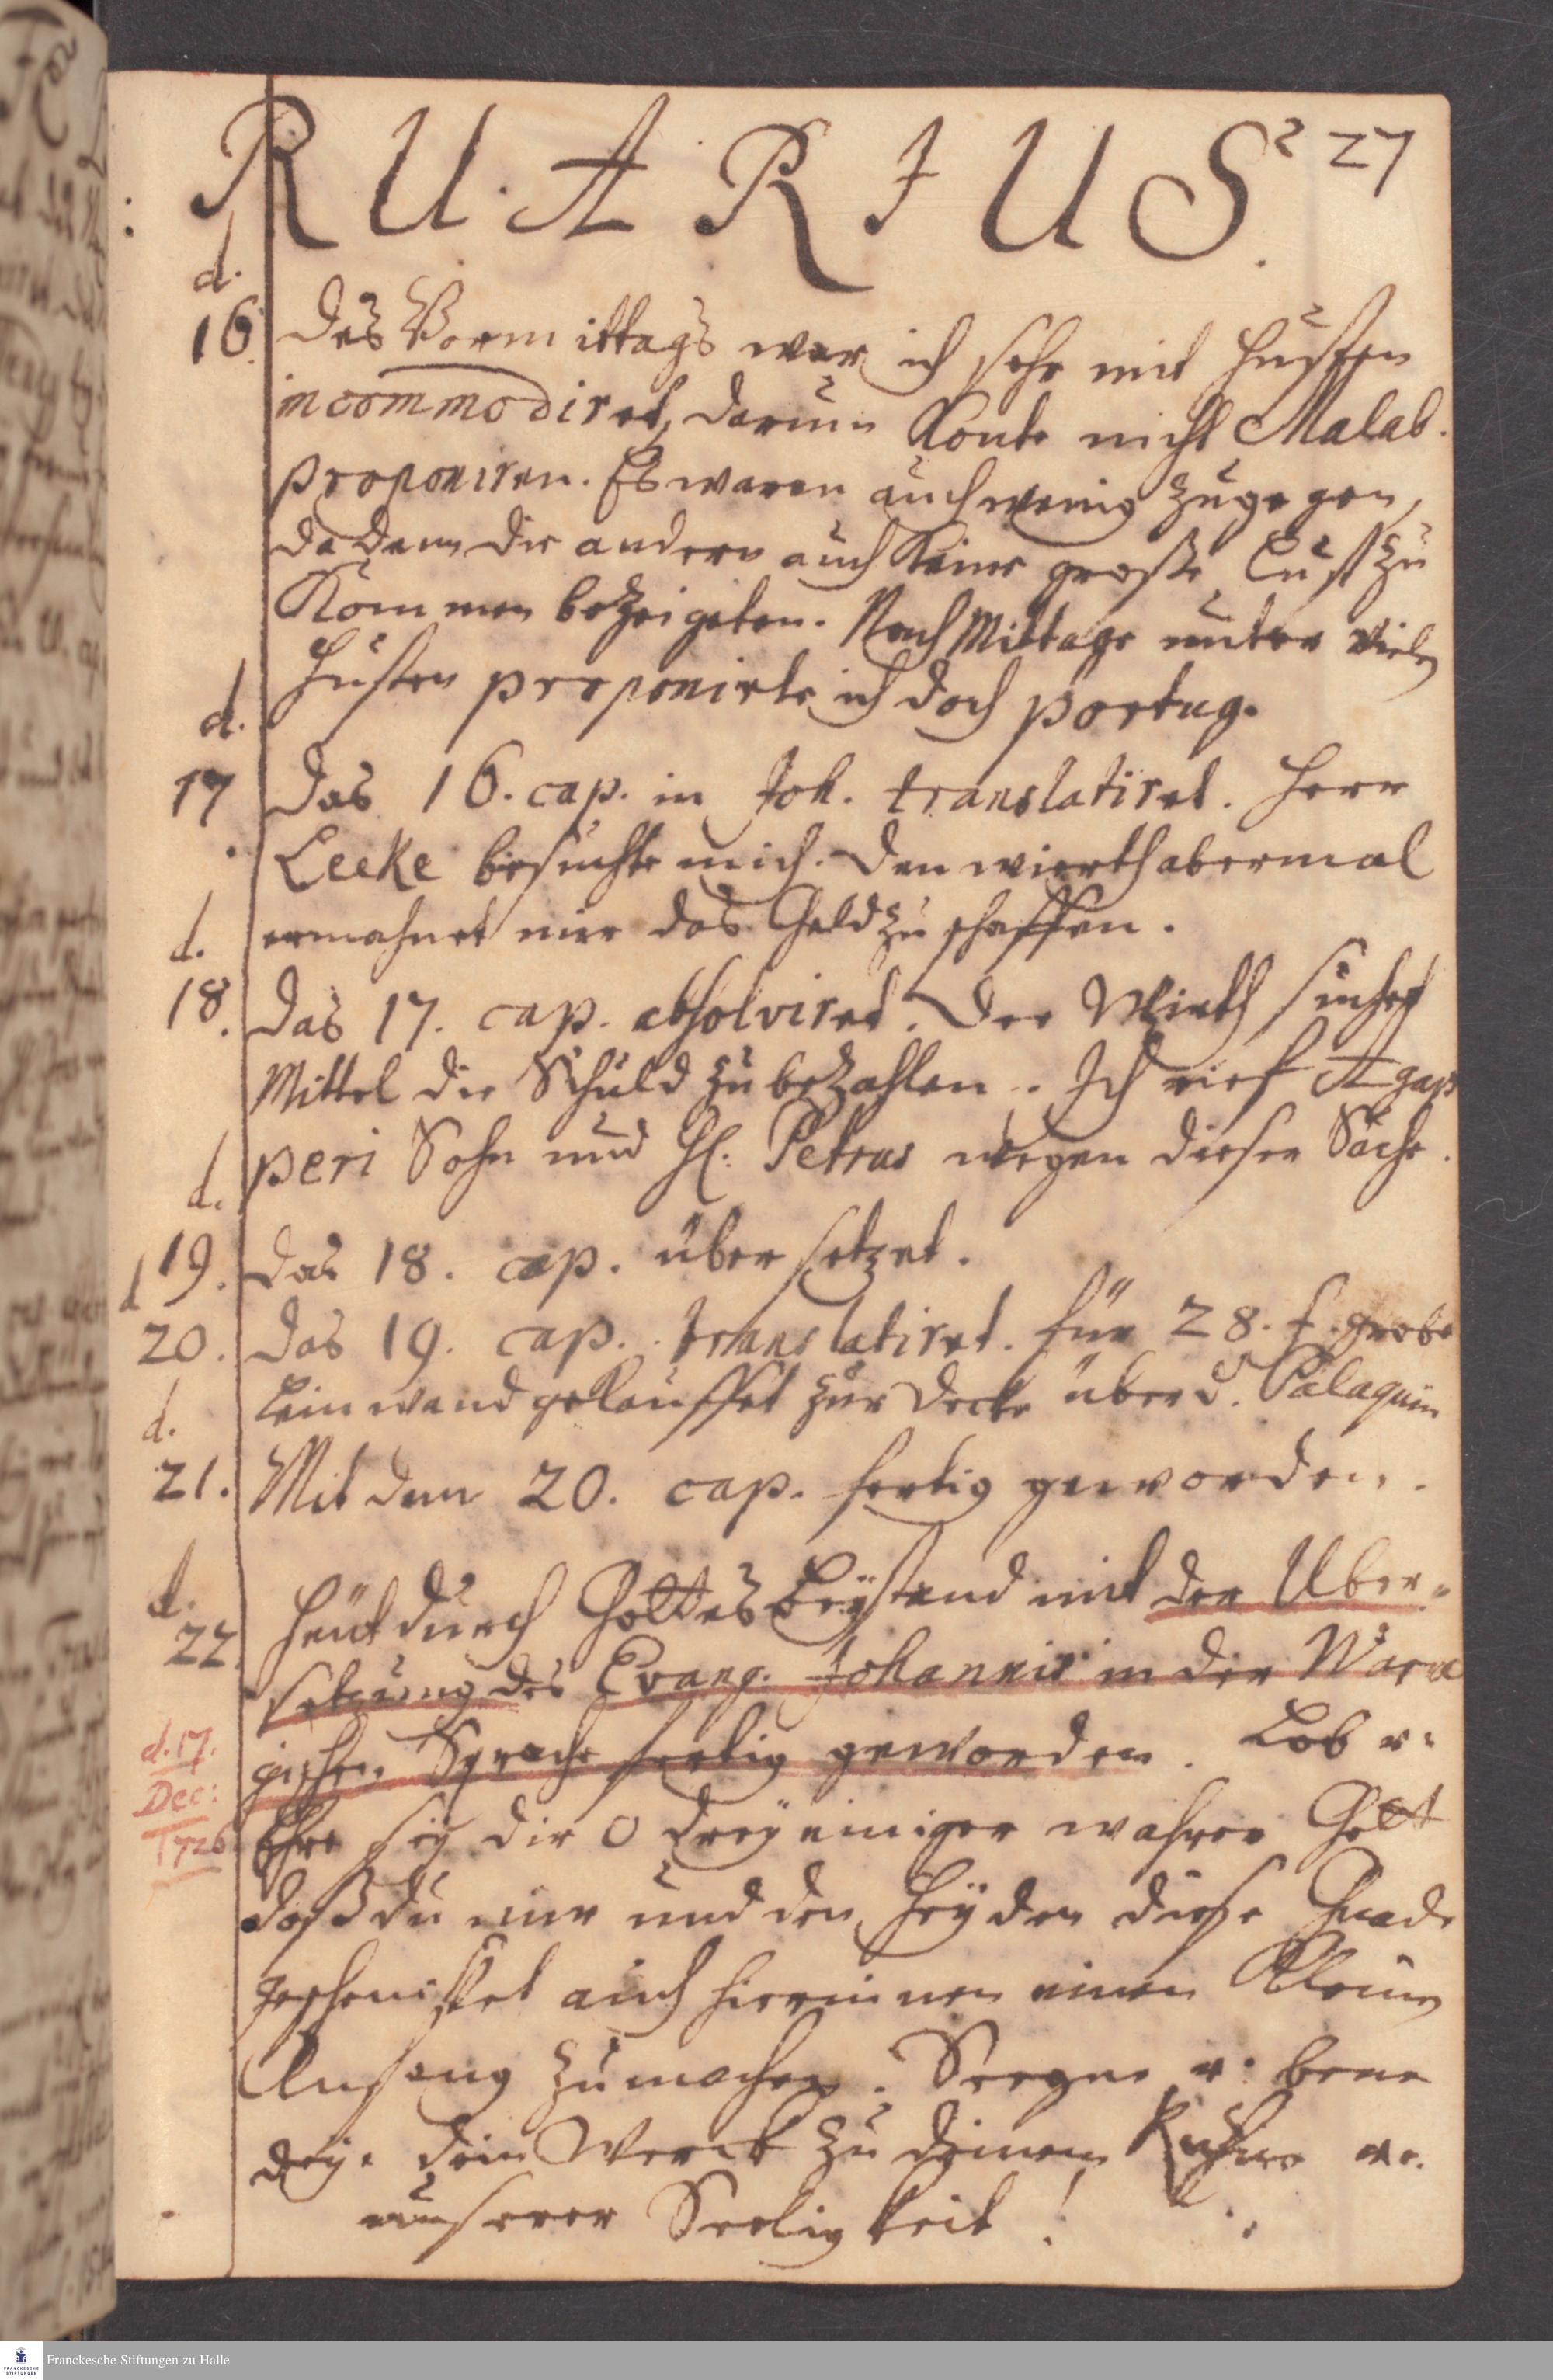 RUARIUS. 227
d.
16. Des Vormittags war ich sehr mit Husten
incommodiret, darum konte nicht Malab.
proponiren. Es waren auch wenig zugegen,
da denn die andern auch keine große Lust zu
kommen bezeigeten. Nach Mittage unter vielen
Husten proponirte ich doch portug.
d.
17 Das 16. cap. in Joh. translatiret. Herr
Leeke besuchte mich. Den wierth abermal
ermahnet mir das Geld zu schaffen.
d.
18. Das 17. cap. absolviret. Der Wirth suchet
Mittel die Schuld zu bezahlen. Ich rief Agap
peri Sohn und H. Petrus wegen dieser Sache.
d.
19. Das 18. cap. übersetzet.
d
20. Das 19. cap. translatiret. für 28. f. grobe
Leinwand gekauffet zur Decke über d. Palaquin
d.
21. Mit dem 20. cap. fertig geworden.
d.
22. Heut durch Gottes Beystand mit der Uber-
setzung des Evang. Johannis in der Waru
gischen Sprache fertig geworden. Lob u.
d. 17.
Dec:
1726
Ehre sey dir O dreyeiniger wahrer Gott
daß du mir und den Heyden diese Gnade
geschencket auch hierinnen einen kleinen
Anfang zu machen. Seegne u. bene
deye dein Werck zu deinem Ruhme u.
unserer Seeligkeit!
Franckesche Stiftungen zu Halle